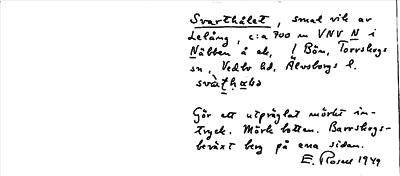 Svarthålet, smal vik av
Lelång, c:a 700 m VNV N i
Näbben å ek, / Bön, Torrskogs
sn, Vedbo hd, Älvsborgs l.
Gör ett utpräglat mörkt in-
tryck. Mörk botten. Barrskogs-
beväxt berg på ena sidan.
E. Rosell 1949